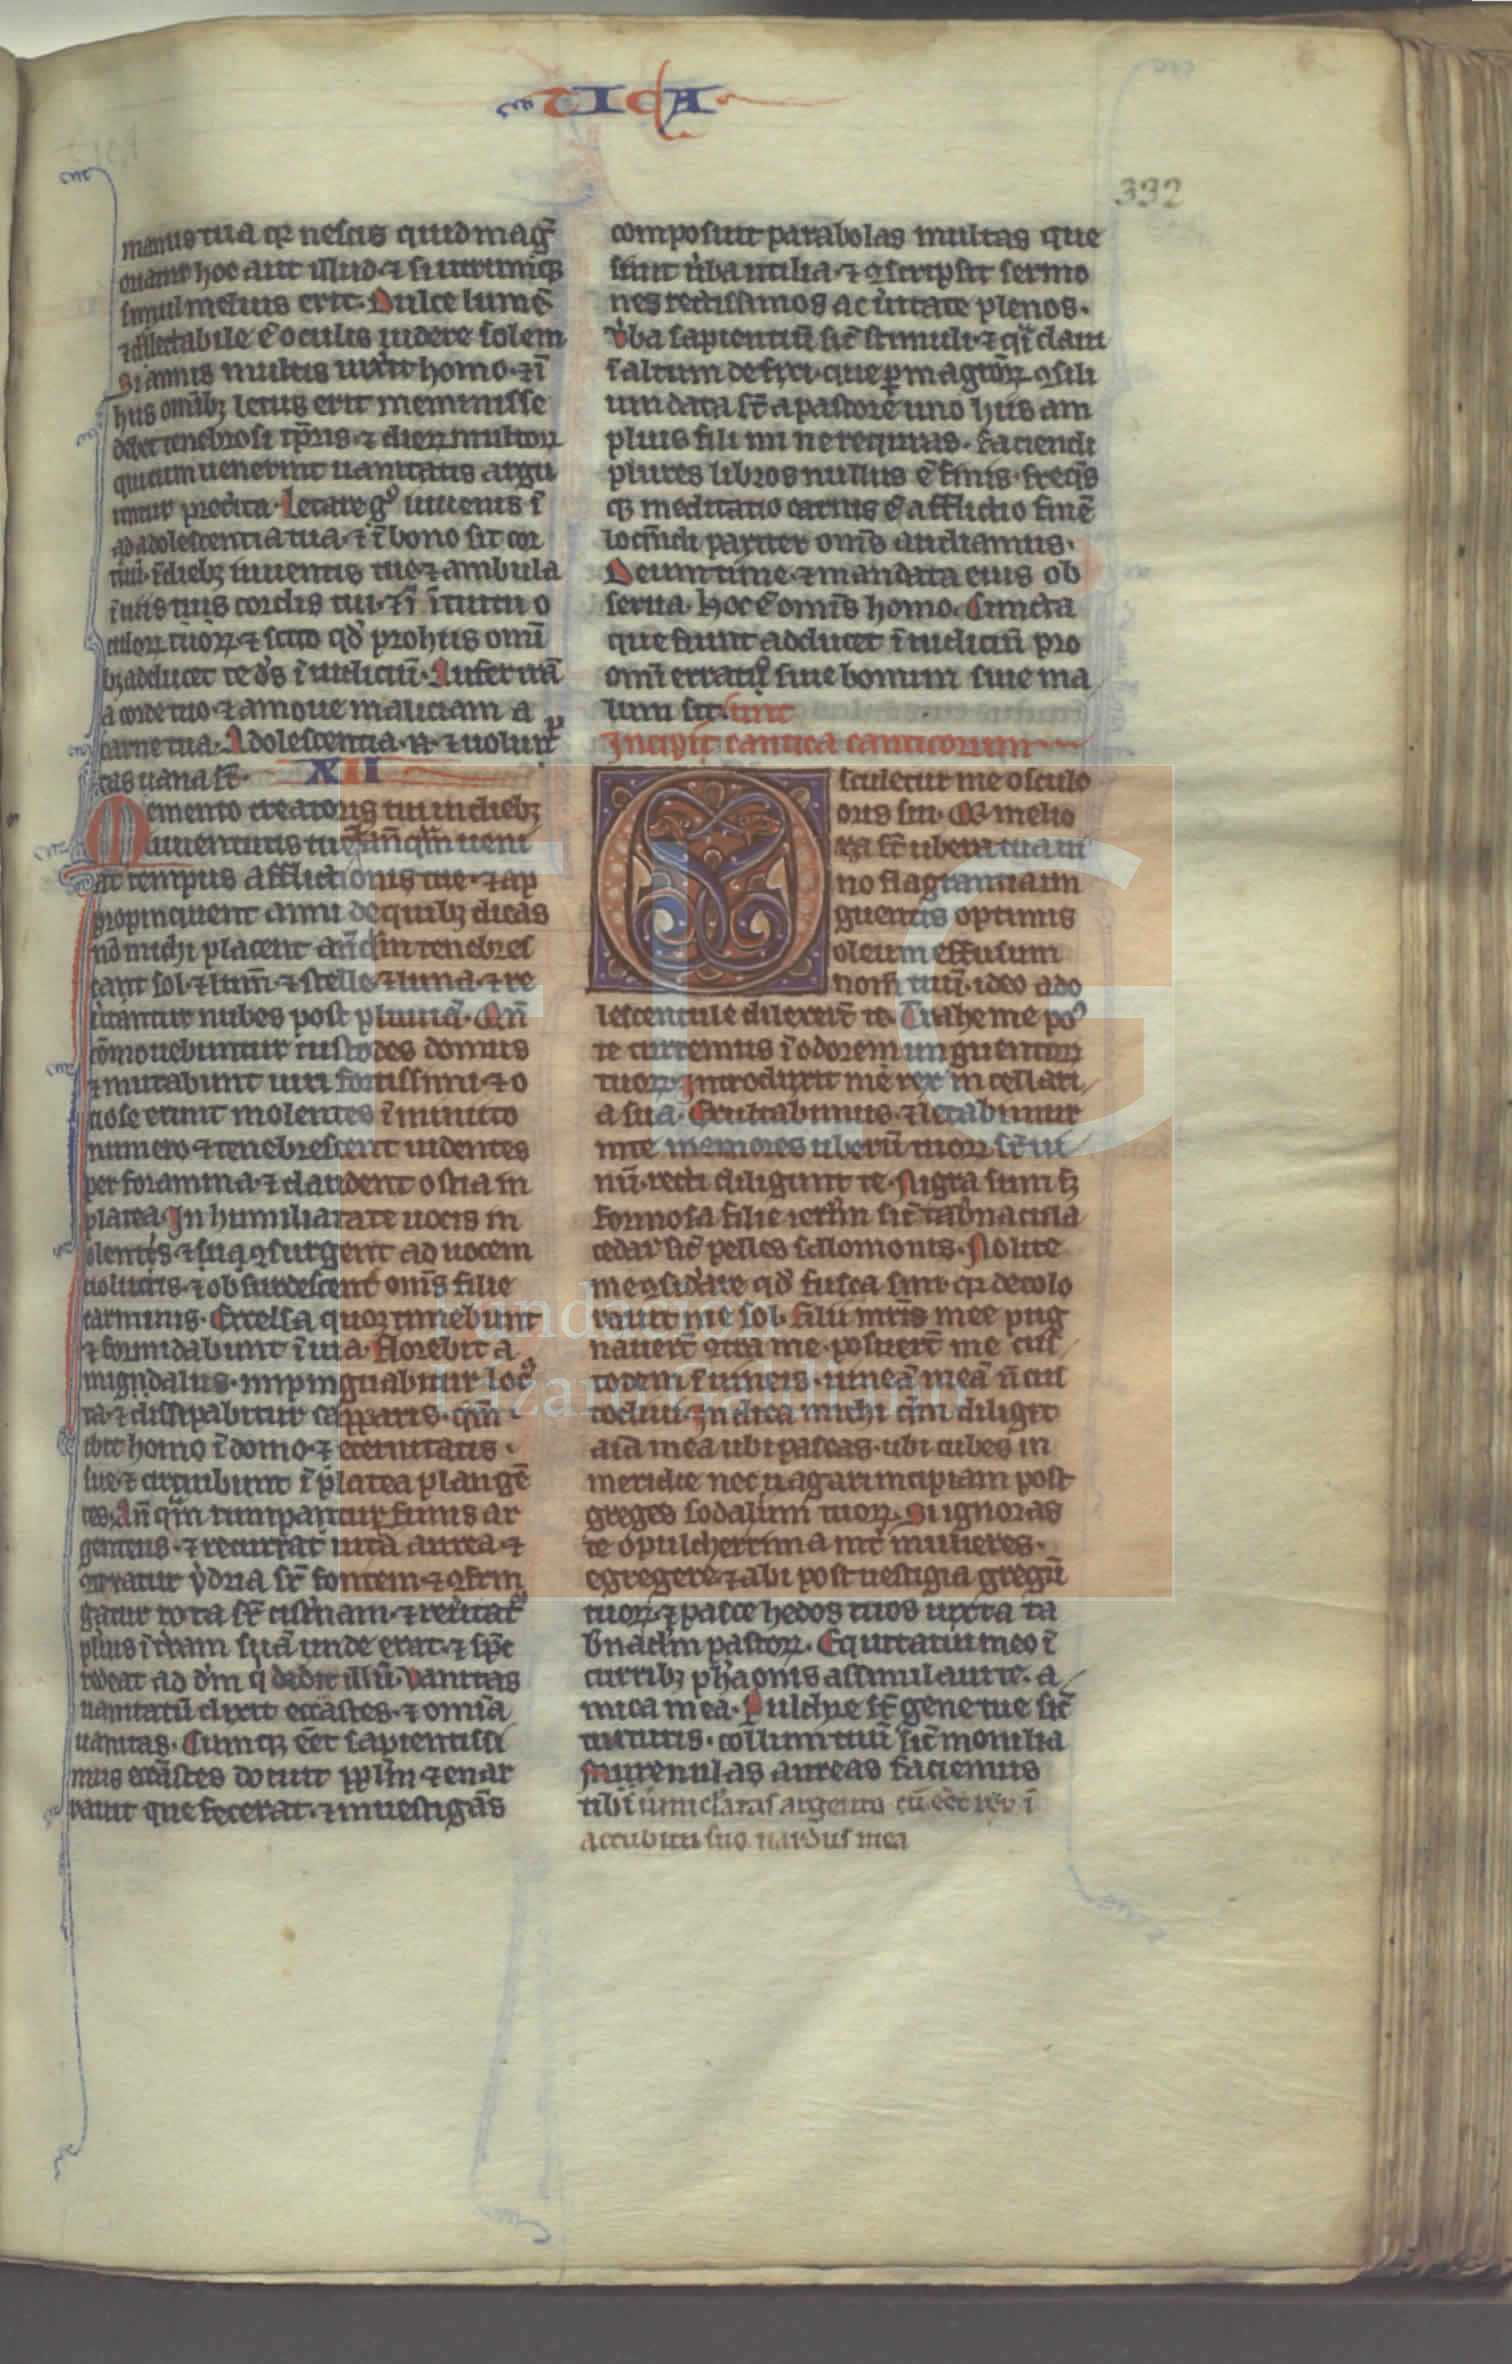 TICA
392
manus tua qr nescis quid mag̃
oriatur hoc aut illud ⁊ si utrumq̧
simul melius erit. Dulce lumẽ
⁊ delectabile ẽ oculis uidere solem
Si annis multis uixerit homo. ⁊ ĩ
hiis omĩbꝫ letus erit meminisse
debet tenebrosi tp̃ris ⁊ dierꝝ multorꝝ
qui cum uenerint uanitatis argu
untur preterita. Letare g̊ iuuenis ĩ
adolescentia tua ⁊ ĩ bono sit cor
tuũ ĩ diebꝫ iuuentis tue ⁊ ambula
ĩ uiis tuis cordis tui ⁊ ĩ ĩtuitu o
culorꝝ tuorꝝ ⁊ scito qd̛ pro hiis omĩ
bꝫ adducet te ds̃ ĩ iudiciũ. Aufer irã
a corde tuo ⁊ amoue maliciam a
carne tua. Adolescentia .n. ⁊ uolup
tas uana sr̃t.
XII
Memento creatoris tui in diebꝫ
iuuentutis tue an̄ qm̃ ueni
at tempus afflictionis tue ⁊ ap
propinquent anni de quibꝫ dicas
nõ michi placent an̄ qm̃ tenebres
cant sol ⁊ lum̃ ⁊ stelle ⁊ luna ⁊ re
uertantur nubes post pluuiã. Qn̄
cõmouebuntur custodes domus
⁊ mutabunt uiri fortissimi ⁊ o
ciose erunt molentes ĩ minuto
numero ⁊ tenebrescent uidentes
per foramina ⁊ claudent ostia in
platea. In humilitate uocis m
olentis ⁊ surgent ad uocem
uolucris ⁊ obsurdescent om̃s filie
carminis. Excelsa quoꝫ timebunt
⁊ formidabunt ĩ uia. Florebit a
migndalus. impinguabitur locus
ta ⁊ dissipabitur capparis. qm̃
ibit homo ĩ domo ⁊ eternitatis
sue ⁊ circuibunt ĩ platea plangẽ
tes. An̄ qm̃ rumpantur funis ar
genteus ⁊ recurrat uitta aurea ⁊
ↄteratur ydria sr̃ fontem ⁊ ↄfrin
gatur rota sr̃ cisternam ⁊ reuertat͛
puluis ĩ t̃ram suã unde erat ⁊ sp̃c
redeat ad dm̃ q̄ dedit illũ. Vanitas
uanitatũ dixit eccl̃astes ⁊ omĩa
uanitas. Cumqꝫ eẽt sapientissi
mus eccl̃astes docuit pp̃lm ⁊ enar
rauit que fecerat ⁊ inuestigãs
composuit parabolas multas que
sunt uerba utilia ⁊ ↄscripsit sermo
nes rectissimos ac ueritate plenos.
Verba sapientiũ sic̃ stimuli ⁊ q̃i claui
saltum defixi que per magrõꝝ ↄsili
um data sr̃t a pastore uno hiis am
plius fili mi ne requiras. Faciendi
plures libros nullus ẽ finis. freqñs
qꝫ meditatio carnis ẽ afflictio finẽ
loquẽdi pariter om̃s audiamus.
Deum time ⁊ mandata eius ob
serua. Hoc ẽ omĩs homo. Cuncta
que fiunt adducet ĩ iudiciũ pro
omĩ erratu siue bonum siue ma
lum sit. finit
Incipit cantica canticorum
Osculetur me osculo
oris sui. Qr melio
ra sr̃t ubera tua ui
no flagrantia un
guentis optimis
oleum effusum
nom̃ tuũ. ideo ado
lescentule dilexerũt te. Trahe me po
te curremus ĩ odorem unguentorꝝ
tuorꝝ. Introduxit me rex in cellari
a sua. Exultabimus ⁊ letabimur
in te memores uberũ tuorꝝ sr̃ ui
nũ. recti diligunt te. Nigra sum sꝫ
formosa filie ierłm sic̃ tab̃nacula
cedar sic̃ pelles salomonis. Nolite
me ↄsiderare qd̛ fusca sim qr decolo
rauit me sol. Filii mr̃is mee pug
nauerũt ↄtra me. posuerũt me cus
todem ĩ uineis. uineã meã ñ cus
todiui. Indica michi qm̃ diligit
aĩa mea ubi pascas. ubi cubes in
meridie nec uagari incipiam post
greges sodalium tuorꝝ. Si ignoras
te o pulcherrima int̃ mulieres.
egregere ⁊ abi post uestigia gregũ
tuorꝝ ⁊ pasce hedos tuos iuxta ta
b̃nacl̃m pastorꝝ. Equitatui meo ĩ
curribꝫ pharaonis assimilaui te. a
mica mea. Pulchre sr̃t gene tue sic̃
turturis. collum tuũ sic̃ monilia
Murenulas aureas faciemus
tibi uermiclatas argento cũ eẽt rex ĩ
accubitu suo nardus mea
undación
Lázaro Galdiano